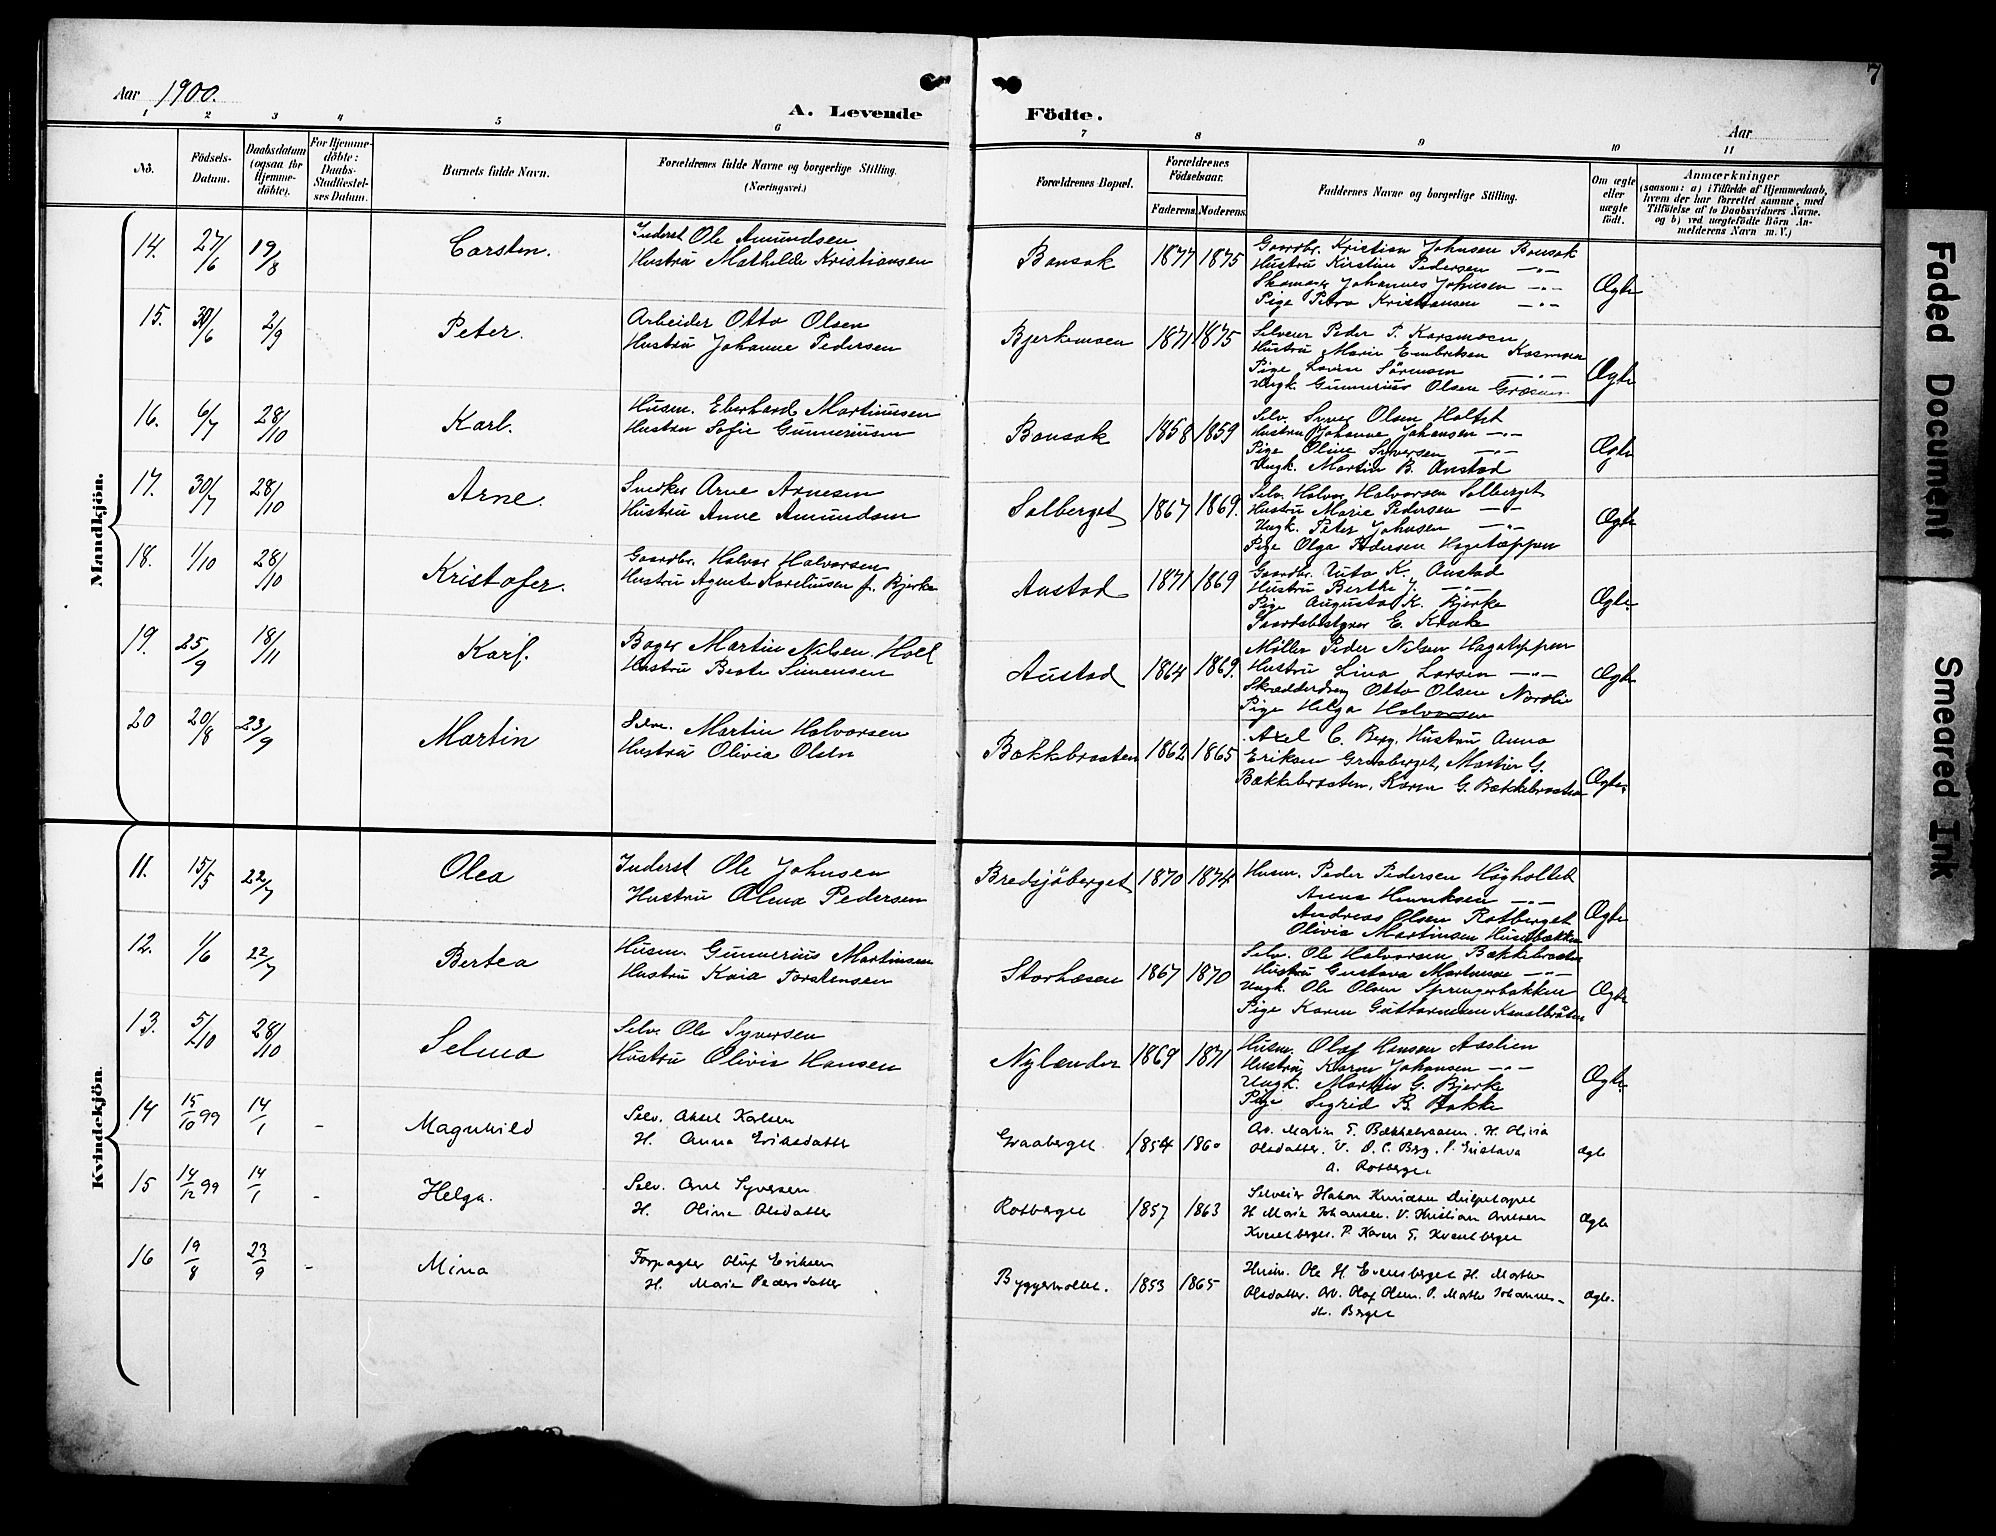 7
Aar 1900.
A. Levende Födte.
Aar
1 2 3 4 5 6 7 8 9 10 11
No.
Födsels-Datum.
Daabsdatum (ogsaa for Hjemmedöbte).
For Hjemmedöbte: Daabs-Stadfæstelses Datum.
Barnets fulde Navn.
Forældrenes fulde Navne og borgerlige Stilling. (Næringsvei.)
Forældrenes Bopæl.
Forældrenes Födselsaar.
Faderens. Moderens.
Faddernes Navne og borgerlige Stilling.
Om ægte eller uægte födt.
Anmærkninger
(saasom: a) i Tilfælde af Hjemmedaab, hvem der har forrettet samme, med Tilföielse af to Daabsvidners Navne. og b) ved uægtefödte Börn Anmelderens Navn m. V.)
Mandkjön.
14. 27/6 19/8 Carsten.
Inderst Ole Amundsen
Hustru Mathilde Kristiansen
Bonsak 1877 1875
Gaardbr. Kristian Johnsen Bonsak
Hustru Kirstine Pedersen —"—
Skomager Johannes Johnsen —"—
Pige Petra Kristiansen —"—
Ægte
15. 30/6 2/9 Peter.
Arbeider Otto Olsen
Hustru Johanne Pedersen
Bjerkemoen 1871 1875
Selveier Peder P. Kaasmoen
Hustru Marie Embretsen Kaasmoen
Pige Lovise Sörensen —"—
Ungk. Gunnerius Olsen
Ægte
16. 6/7 28/10 Karl.
Husm. Eberhard Martinusen
Hustru Sofie Gunneriusen
Bonsak 1858 1859
Selv. Syver Olsen Holtet
Hustru Johanne Johansen —"—
Pige Oline Syversen —"—
Ungk. Martin B. Austad
Ægte
17. 30/7 28/10 Arne.
Snedker Arne Arnesen
Hustru Anne Amundsen
Solberget 1867 1869.
Selv. Halvor Halvorsen Solberget
Hustru Marie Pedersen —"—
Ungk. Peter Johnsen —"—
Pige Olga Pedersen Hagetoppen
Ægte
18. 1/10 28/10 Kristofer.
Gaardbr. Halvor Halvorsen
Hustru Agnete Kareliusen f. Bjerke
Austad 1871 1869
Gaardbr. K. Austad
Hustru Berthe J. —"—
Pige Augusta K. Bjerke
Gaardsbestyrer E.
Ægte.
19. 25/9 18/11 Karl.
Bager Martin Nilsen Hoel
Hustru Beate Simensen
Austad 1864 1869.
Møller Peder Nilsen Hagetoppen
Hustru Lina Larsen —"—
Skrædderdreng Otto Olsen Nordli
Pige Helga Halvorsen
Ægte
20 20/8 23/9 Martin
Selv. Martin Halvorsen
Hustru Olivia Olsen
Bækkebraaten 1862 1865
Axel C. Berg. Hustru Anna
Eriksen Graaberget, Martin G.
Bækkebraaten, Karen G. Bækkebraaten
Ægte.
Kvindekjön.
11. 15/5 22/7 Olea
Inderst Ole Johnsen
Hustru Olena Pedersen
Bredsjöberget 1870 1874.
Husm. Peder Pedersen Högholtet
Anne Henriksen —"—
Andreas Olsen Rotberget
Olivia Martinsen Husebækken
Ægte
12. 1/6 22/7 Bertea
Husm. Gunnerius Martinsen
Hustru Kaia Torstensen
Storhæsen 1867 1870
Selv. Ole Halvorsen Bækkebraaten
Hustru Gustava Martinsen —"—
Ungk. Ole Olsen Sprengerbakken
Pige Karen Guttormsen
Ægte
13. 5/10 28/10 Selma
Selv. Ole Syversen
Hustru Olivia Hansen
Nylænder 1869 1871
Husm. Olaf Hansen Aaslien
Hustru Karen Johansen —"—
Ungk. Martin G. Bjerke
Pige Sigrid B. Bakke
Ægte.
14 15/10 99 14/1 - Magnhild
Selv. Aksel Karlsen
H. Anna Eriksdatter
Graaberget. 1854 1860
Arb. Martin T. Bækkebraaten. H. Olivia
Olsdatter. U. O. C. Berg. P. Gustava
A. Rotberget
Ægte
15 14/12 99 14/1 - Helga.
Selv. Arne Syversen
H. Oline Olsdatter
Rotberget 1857 1863
Selveier Hakon Knudsen
H. Marie Johansen. U. Kristian Arnesen
Kvenlberget. P. Karen T. Kvenlberget
Ægte
16 19/8 23/9 - Mina
Forpagter Oluf Eriksen
H. Marie Pedersdatter
Byggerholtet. 1853 1865
Husm. Ole H. Evensberget H. Marthe
Olsdatter. Arb. Olaf Olsen. P. Marthe Johannes-
dr. Berget
Ægte.
Faded Document
Smeared Ink